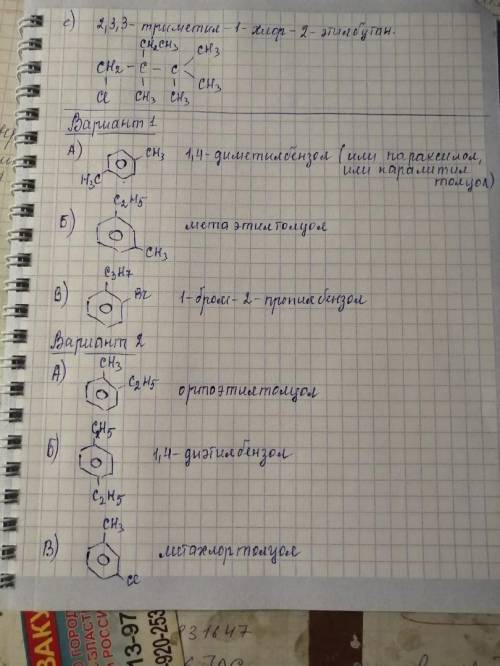 с) 2,3,3-триметил-1-хлор-2-этилбутан.
CH2CH3
CH3
CH2 - C - C
CH3
Cl CH3 CH3
Вариант 1
А) CH3 1,4-диметилбензол (или параксилол,
H3C или параметил
толуол)
C2H5
Б) метаэтилтолуол
CH3
C3H7
В) Br 1-бром-2-пропилбензол
Вариант 2
CH3
А) C2H5 ортоэтилтолуол
C2H5
Б) 1,4-диэтилбензол
C2H5
CH3
В) метахлортолуол
Cl
ВАКУ
ПО ГОРОД
ОБЛАСТ
РОССИ
13-97
-920-253
931647